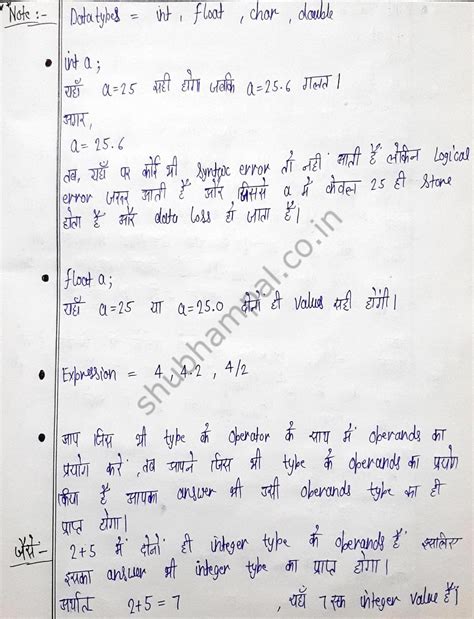 Note :- Datatypes = int, float, char, double
int a ;
यहाँ a=25 सही होगा जबकि a=25.6 गलत।
अगर,
a = 25.6
तब, यहाँ पर कोई भी syntax error तो नहीं आती है लेकिन Logical
error जरूर आती है और जिससे a में केवल 25 ही store
होता है और data loss हो जाता है।
float a ;
यहाँ a=25 या a=25.0 दोनों ही value सही होंगी।
Expression = 4 , 4.2 , 4/2
आप जिस भी type के operator के साथ में operands का
प्रयोग करें, तब आपने जिस भी type के operands का प्रयोग
किया है आपका answer भी उसी operands type का ही
प्राप्त होगा।
जैसे:- 2+5 में दोनों ही integer type के operands हैं इसलिए
इसका answer भी integer type का प्राप्त होगा।
अर्थात 2+5 = 7 , यहाँ 7 एक integer value है।
shubhampal.co.in